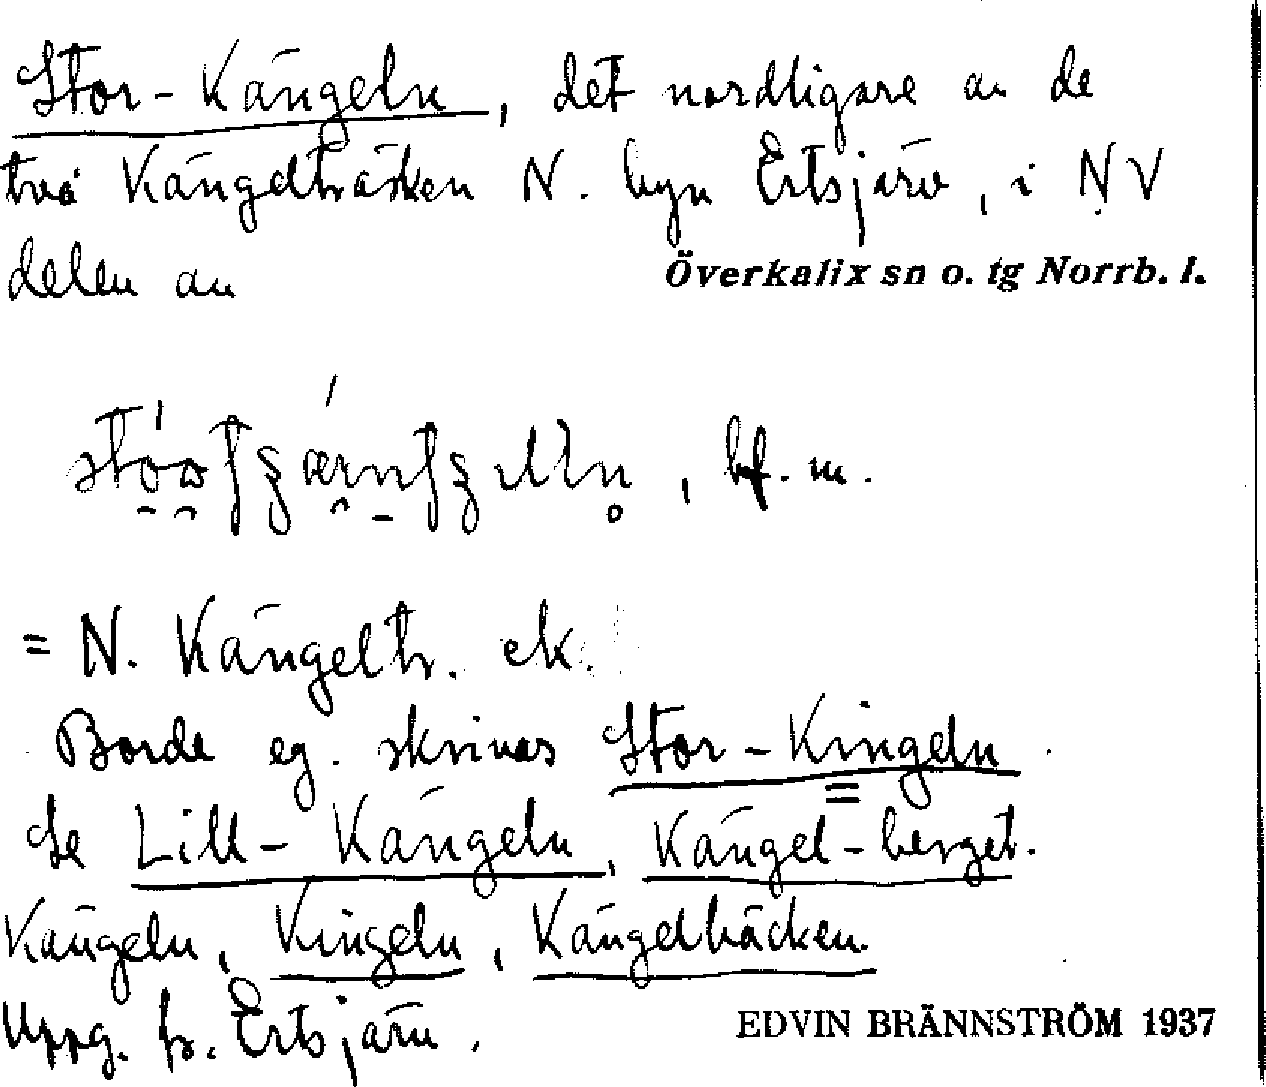 Stor-Kängeln, det nordligare av de
två Kängelträsken N. byn Ertsjärv, i NV
delen av
Överkalix sn o. tg Norrb. l.
, bf. m.
= N. Kängeltr. ek.
Borde eg. skrivas Stor-Kingeln
Se Lill-Kängeln, Kängel-berget.
Kängeln, Kingeln, Kängelbäcken.
Uppg. fr. Ertsjärv.
EDVIN BRÄNNSTRÖM 1937